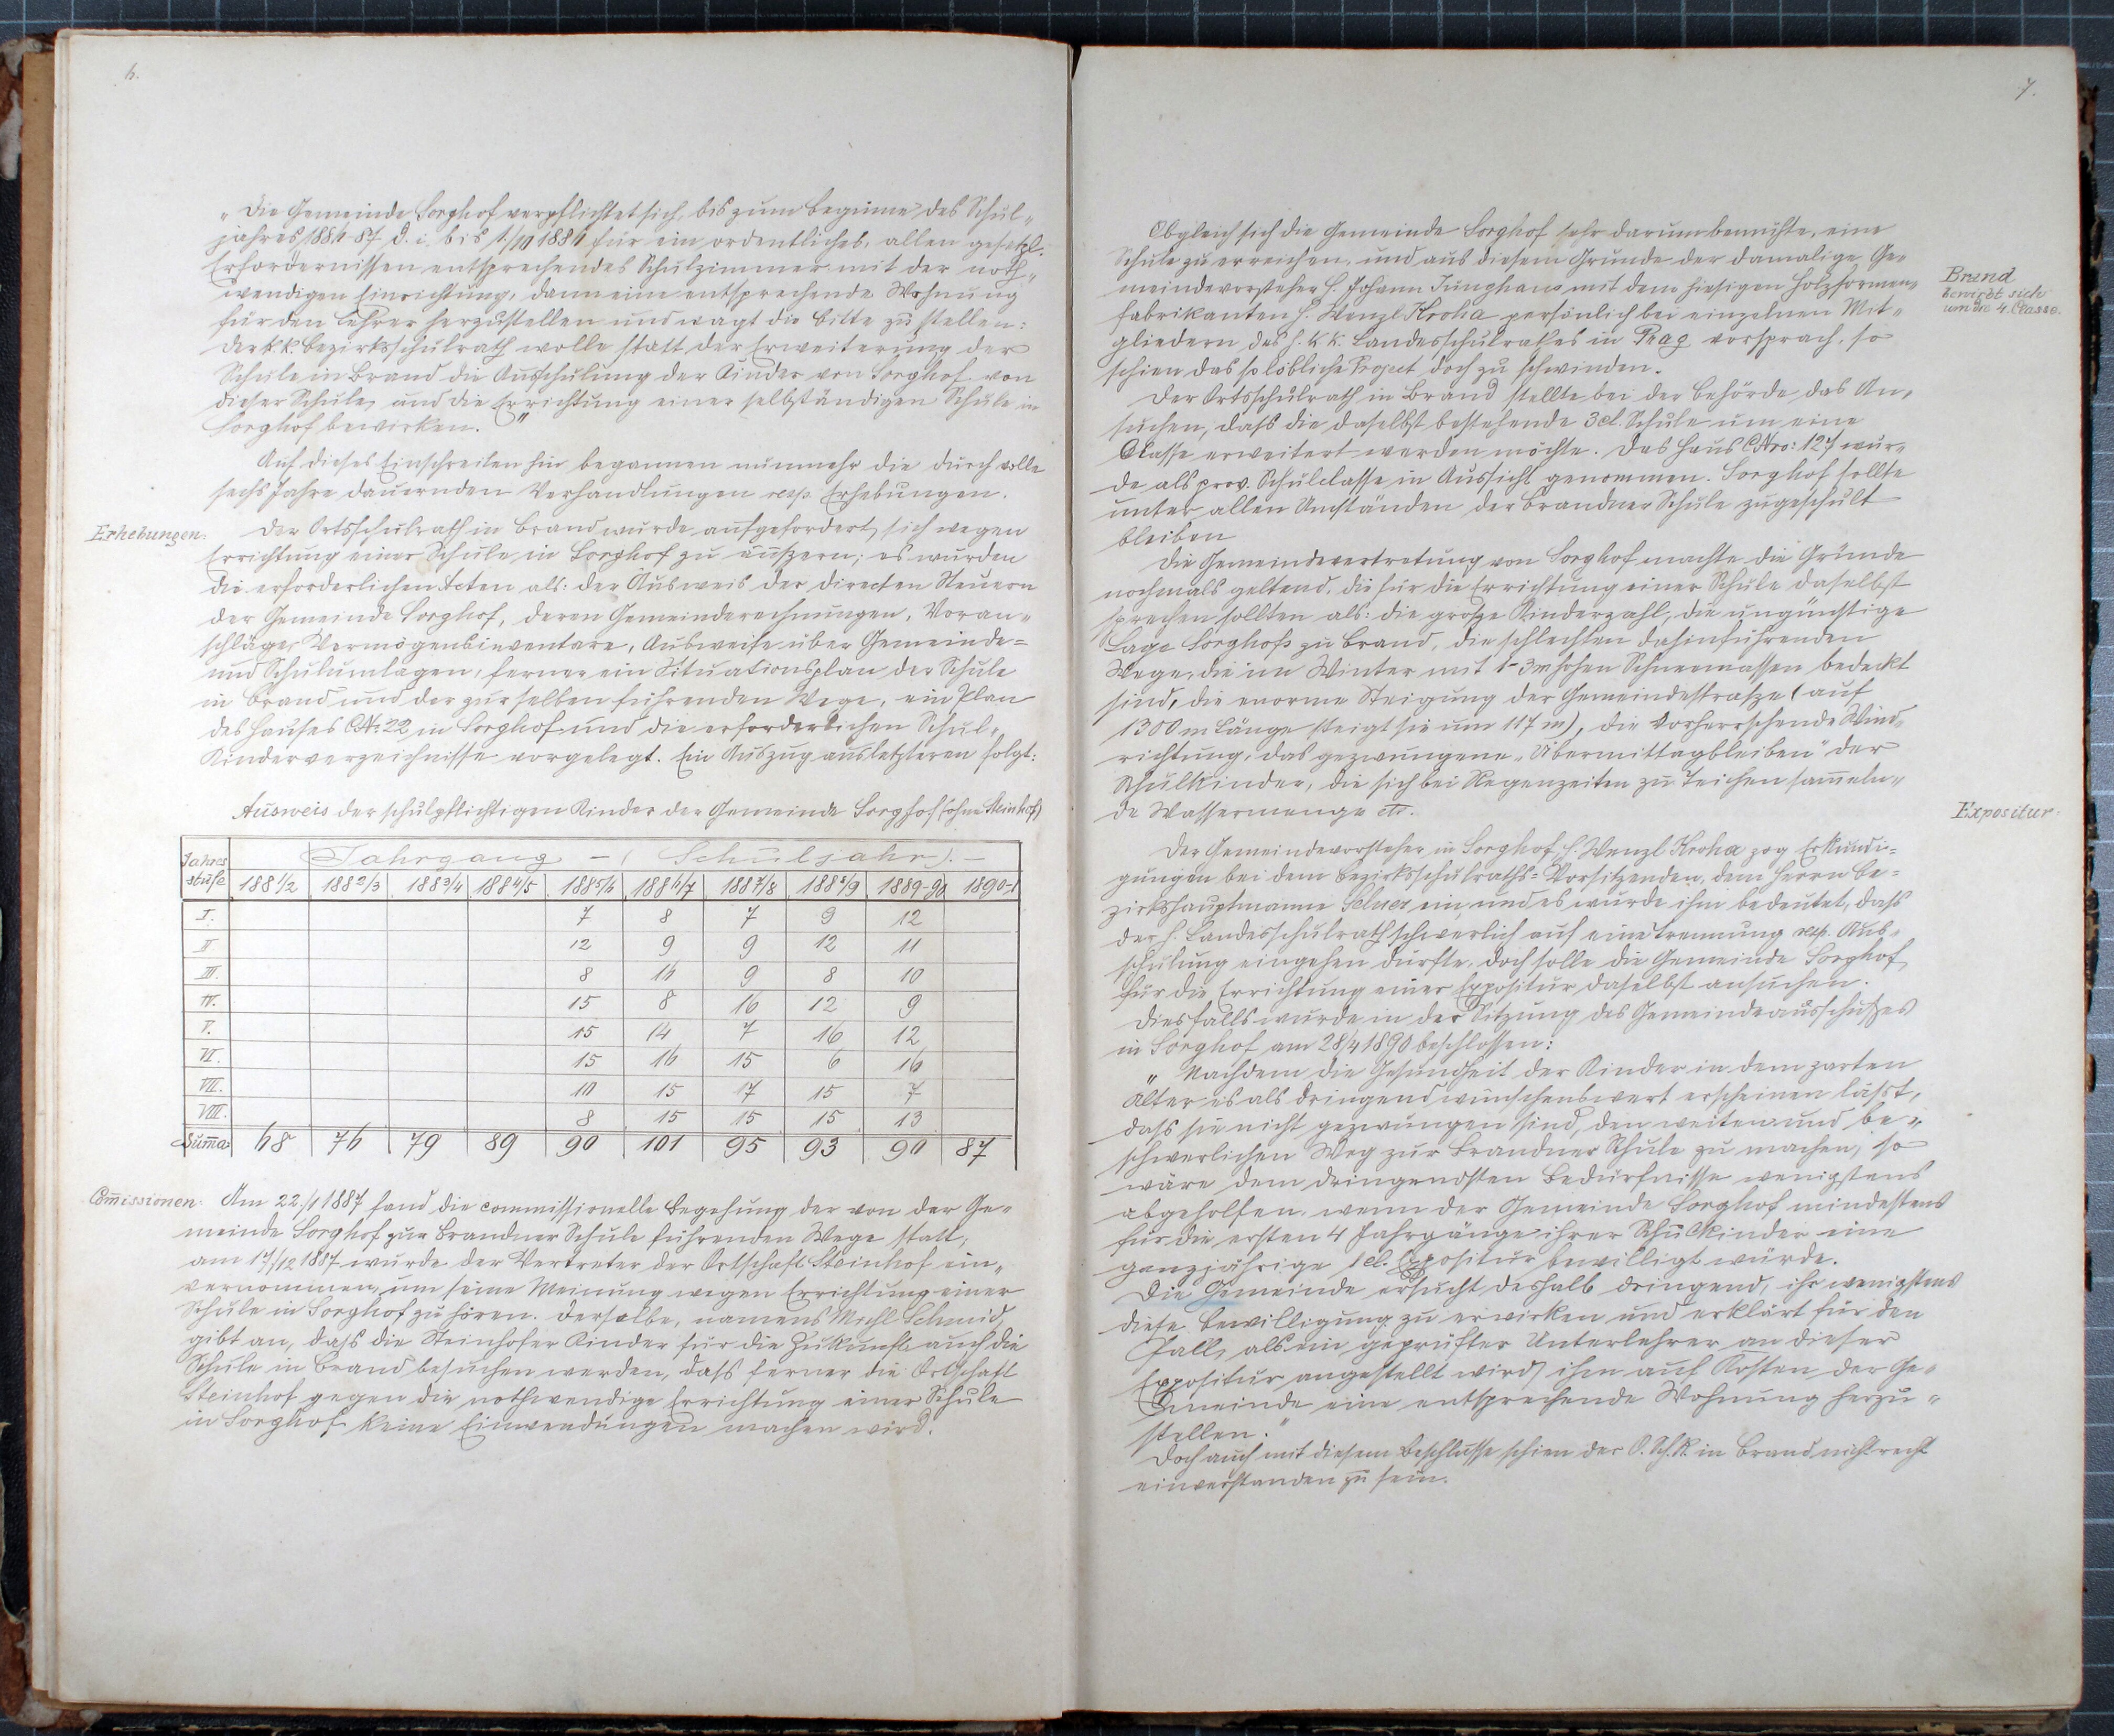 6.
„Die Gemeinde Sorghof verpflichtet sich, bis zum Beginne des Schul„
jahres 1886-87 d. i. bis 1./10 1886 für ein ordentliches, allen gesetzl.
Erfordernissen entsprechendes Schulzimmer mit der noth„
wendigen Einrichtung, dann eine entsprechende Wohnung
für den Lehrer herzustellen und wagt die Bitte zu stellen:
Der k. k. Bezirksschulrath wolle statt der Erweiterung der
Schule in Brand die Ausschulung der Kinder von Sorghof von
dieser Schule, und die Errichtung einer selbständigen Schule in
Sorghof bewirken."
Auf dieses Einschreiten hin begannen nunmehr die durch volle
sechs Jahre dauernden Verhandlungen resp. Erhebungen.
Erhebungen:
Der Ortsschulrath in Brand wurde aufgefordert, sich wegen
Errichtung einer Schule in Sorghof zu äußern; es wurden
die erforderlichen Acten als: der Ausweis der directen Steuern
der Gemeinde Sorghof, deren Gemeinderechnungen, Voran„
schläge, Vermögensinventare, Ausweise über Gemeinde=
und Schulumlagen, ferner ein Situationsplan der Schule
in Brand und der zur selben führenden Wege, ein Plan
des Hauses CNr. 22 in Sorghof und die erforderlichen Schul„
Kinderverzeichnisse vorgelegt. Ein Auszug aus letzteren folgt:
Ausweis der schulpflichtigen Kinder der Gemeinde Sorghof (ohne Steinhof)
Jahres stufe Jahrgang - (Schuljahr). -
1881/2 1882/3 1883/4 1884/5 1885/6 1886/7 1887/8 1888/9 1889-90 1890-1
I. 7 8 7 9 12
II 12 9 9 12 11
III. 8 16 9 8 10
IV. 15 8 16 12 9
V. 15 14 7 16 12
VI. 15 16 15 6 16
VII. 10 15 17 15 7
VIII. 8 15 15 15 13
Sum̄a: 68 76 79 89 90 101 95 93 90 87
Com̄issionen:
Am 22./1 1887 fand die commissionelle Begehung der von der Ge„
meinde Sorghof zur Brandner Schule führenden Wege statt,
am 17/12 1887 wurde der Vertreter der Ortschaft Steinhof ein„
vernommen, um seine Meinung wegen Errichtung einer
Schule in Sorghof zu hören. Derselbe, namens Schmid,
gibt an, dass die Steinhofer Kinder für die Zukunft auch die
Schule in Brand besuchen werden, dass ferner die Ortschaft
Steinhof gegen die nothwendige Errichtung einer Schule
in Sorghof keine Einwendungen machen wird.
7.
Obgleich sich die Gemeinde Sorghof sehr darum bemühte, eine
Schule zu erreichen, und aus diesem Grunde der damalige Ge„
meindevorsteher H. Johann Junghans mit dem hiesigen Holzformen„
fabrikanten H. Wenzl Kroha persönlich bei einzelnen Mit„
gliedern des h. k. k. Landesschulrathes in Prag vorsprach, so
schien das so löbliche Project doch zu schwinden.
Brand
bewirbt sich
um die 4. Classe.
Der Ortsschulrath in Brand stellte bei der Behörde das An„
suchen, dass die daselbst bestehende 3cl. Schule um eine
Classe erweitert werden möchte. Das Haus CNro: 127 wur„
de als prov. Schulclasse in Aussicht genommen. Sorghof sollte
unter allen Umständen der Brandner Schule zugeschult
bleiben
Die Gemeindevertretung von Sorghof machte die Gründe
nochmals geltend, die für die Errichtung einer Schule daselbst
sprechen sollten als: die große Kinderzahl, die ungünstige
Lage Sorghofs zu Brand, die schlechten dahinführenden
Wege, die im Winter mit 1-3m hohen Schneemassen bedeckt
sind, die enorme Steigung der Gemeindestraße (auf
1300 m Länge steigt sie um 117 m), die vorherrschende Wind„
richtung, das gezwungene „Übermittagbleiben" der
Schulkinder, die sich bei Regenzeiten zu Teichen sam̄eln„
de Wassermenge etc.
Expositur:
Der Gemeindevorsteher in Sorghof, H. Wenzl Kroha zog Erkundi„
gungen bei dem Bezirksschulraths=Vorsitzenden, dem Herrn Be=
zirkshauptmanne ein, und es wurde ihm bedeutet, dass
der h. Landesschulrath schwerlich auf eine Trennung resp. Aus„
schulung eingehen dürfte, doch solle die Gemeinde Sorghof
für die Errichtung einer Expositur daselbst ansuchen.
Diesfalls wurde in der Sitzung des Gemeindeausschußes
in Sorghof am 28/4 1890 beschlossen:
„Nachdem die Gesundheit der Kinder in dem zarten
Alter es als dringend wünschenswert erscheinen lässt,
dass sie nicht gezwungen sind, den weiten und be„
schwerlichen Weg zur Brandner Schule zu machen, so
wäre dem dringendsten Bedürfnisse wenigstens
abgeholfen, wenn der Gemeinde Sorghof mindestens
für die ersten 4 Jahrgänge ihrer Schulkinder eine
ganzjährige 1 cl. Expositur bewilligt würde.
Die Gemeinde ersucht deshalb dringend, ihr wenigstens
diese Bewilligung zu erwirken und erklärt für den
Fall, als ein geprüfter Unterlehrer an dieser
Expositur angestellt wird, ihm auf Kosten der Ge„
meinde eine entsprechende Wohnung herzu„
stellen."
Doch auch mit diesem Beschlusse schien der O. Sch. R. in Brand nicht recht
einverstanden zu sein.